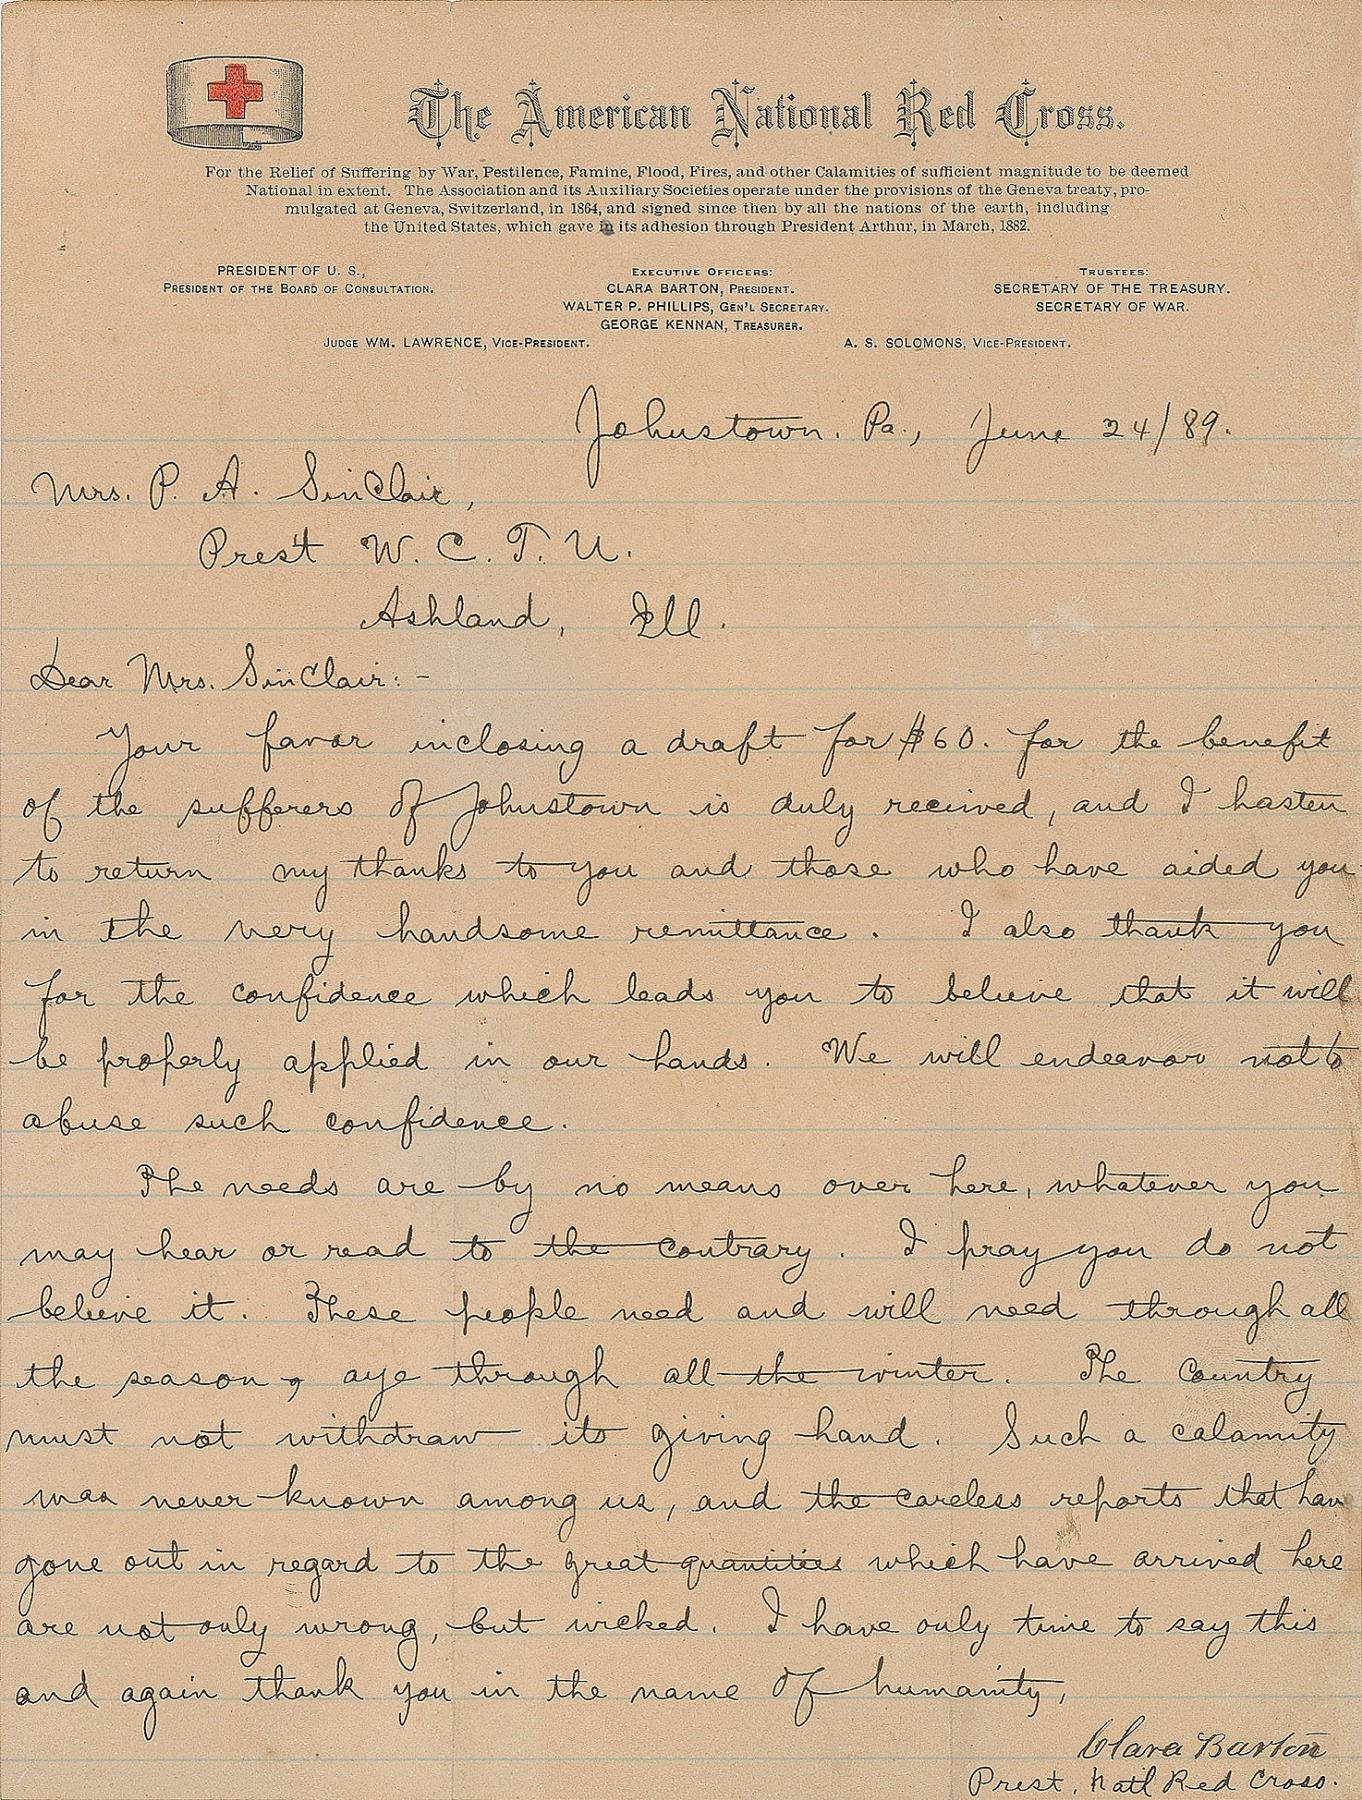 The American National Red Cross.
For the Relief of Suffering by War, Pestilence, Famine, Flood, Fires, and other Calamities of sufficient magnitude to be deemed
National in extent. The Association and its Auxiliary Societies operate under the provisions of the Geneva treaty, pro-
mulgated at Geneva, Switzerland, in 1864, and signed since then by all the nations of the earth, including
the United States, which gave in its adhesion through President Arthur, in March, 1882.
PRESIDENT OF U. S.,
PRESIDENT OF THE BOARD OF CONSULTATION.
EXECUTIVE OFFICERS:
CLARA BARTON, PRESIDENT.
WALTER P. PHILLIPS, GEN'L SECRETARY.
GEORGE KENNAN, TREASURER.
TRUSTEES:
SECRETARY OF THE TREASURY.
SECRETARY OF WAR.
JUDGE WM. LAWRENCE, VICE-PRESIDENT.
A. S. SOLOMONS, VICE-PRESIDENT.
Johnstown. Pa., June 24/89.
Mrs. P. A. SinClair,
Pres't W. C. T. U.
Ashland, Ill.
Dear Mrs. SinClair:-
Your favor inclosing a draft for $60. for the benefit
of the sufferers of Johnstown is duly received, and I hasten
to return my thanks to you and those who have aided you
in the very handsome remittance. I also thank you
for the confidence which leads you to believe that it will
be properly applied in our hands. We will endeavor not to
abuse such confidence.
The needs are by no means over here, whatever you
may hear or read to the contrary. I pray you do not
believe it. These people need and will need through all
the season, aye through all the winter. The Country
must not withdraw its giving hand. Such a calamity
was never known among us, and the careless reports that have
gone out in regard to the great quantities which have arrived here
are not only wrong, but wicked. I have only time to say this
and again thank you in the name of humanity,
Clara Barton
Prest. Natl Red Cross.